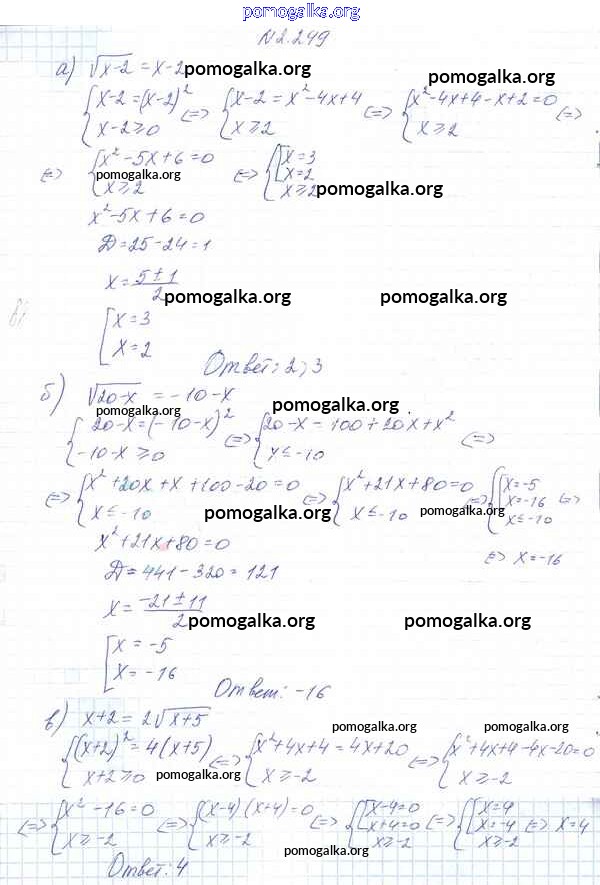 pomogalka.org
N 2.249
а) √x-2 = x-2 pomogalka.org pomogalka.org
{x-2=(x-2)² x-2≥0 <=> {x-2 = x²-4x+4 x≥2 <=> {x²-4x+4-x+2=0 x≥2 <=>
<=> {x²-5x+6=0 x≥2 pomogalka.org <=> {[x=3 x=2 x≥2 pomogalka.org
x²-5x+6=0
Д=25-24=1
x = (5±1)/2 pomogalka.org pomogalka.org
[x=3
x=2
Ответ: 2; 3
б) √20-x = -10-x
pomogalka.org pomogalka.org
{20-x=(-10-x)² -10-x≥0 <=> {20-x = 100+20x+x² x≤-10 <=>
<=> {x²+20x+x+100-20=0 x≤-10 <=> {x²+21x+80=0 x≤-10 <=> {[x=-5 x=-16 x≤-10 <=>
pomogalka.org pomogalka.org
x²+21x+80=0 <=> x=-16
Д=441-320=121
x = (-21±11)/2 pomogalka.org pomogalka.org
[x = -5
x = -16
Ответ: -16
в) x+2 = 2√x+5
pomogalka.org pomogalka.org
{(x+2)²=4(x+5) x+2≥0 <=> {x²+4x+4=4x+20 x≥-2 <=> {x²+4x+4-4x-20=0 x≥-2
pomogalka.org
<=> {x²-16=0 x≥-2 <=> {(x-4)(x+4)=0 x≥-2 <=> {[x-4=0 x+4=0 x≥-2 <=> {[x=4 x=-4 x≥-2 <=> x=4
pomogalka.org
Ответ: 4